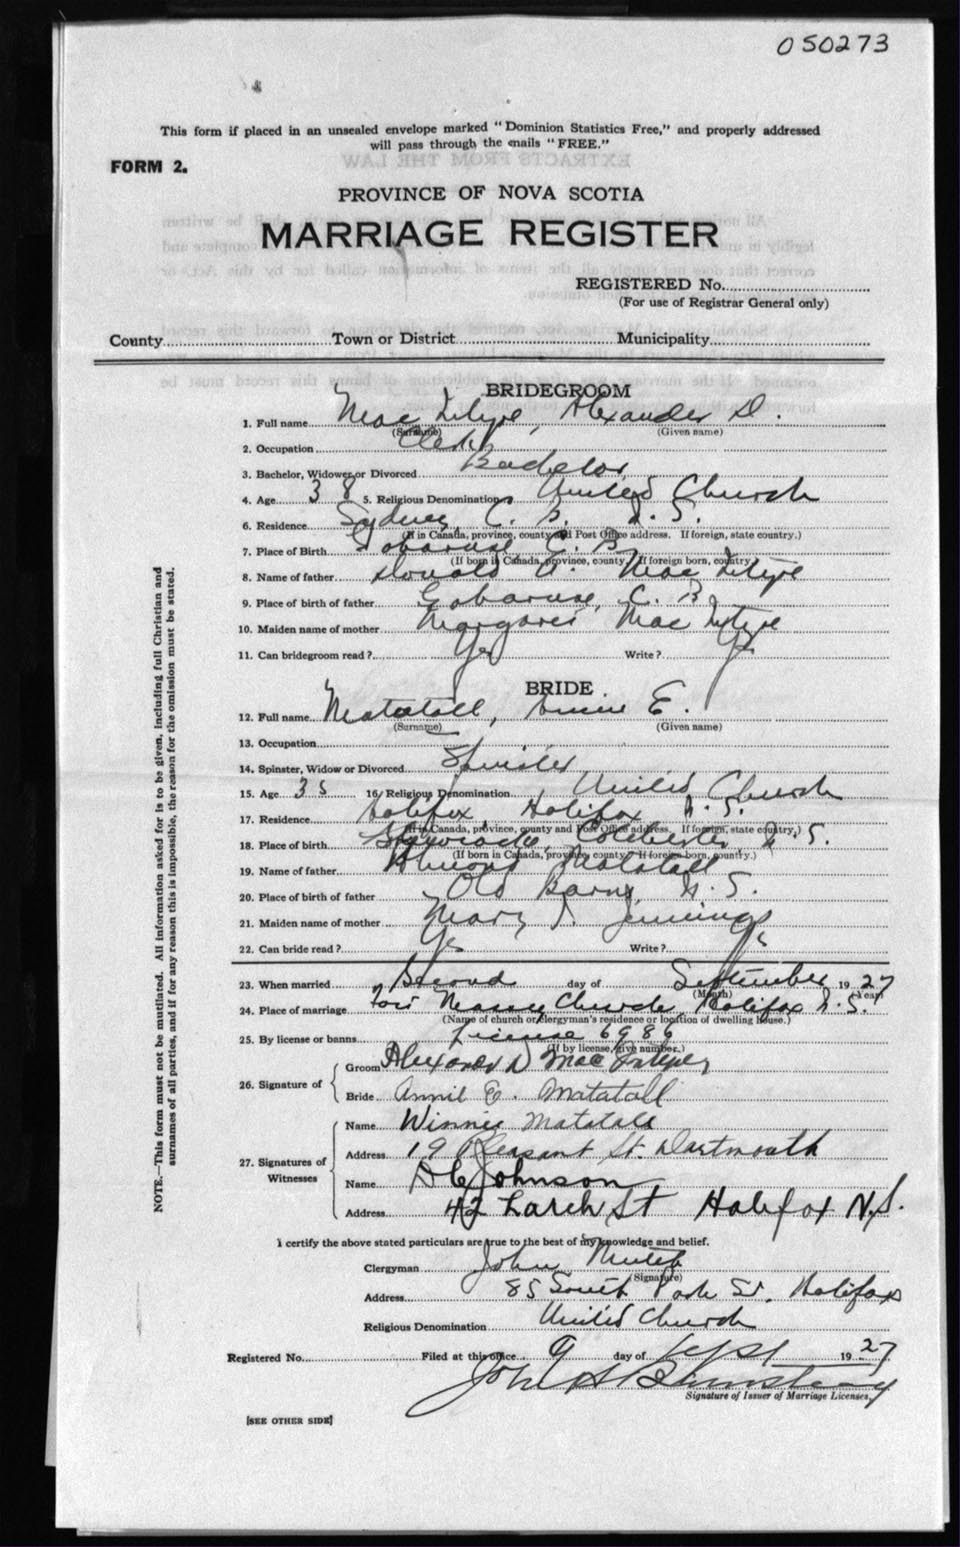 050273
This form if placed in an unsealed envelope marked "Dominion Statistics Free," and properly addressed
will pass through the mails "FREE."
FORM 2.
PROVINCE OF NOVA SCOTIA
MARRIAGE REGISTER
REGISTERED No.
(For use of Registrar General only)
County Town or District Municipality
BRIDEGROOM
1. Full name Mac Intyre, Alexander D.
(Surname) (Given name)
2. Occupation Clerk
3. Bachelor, Widower or Divorced Bachelor
4. Age 38 5. Religious Denomination United Church
6. Residence Sydney C. B. N. S.
(If in Canada, province, county and Post Office address. If foreign, state country.)
7. Place of Birth Gabaruse, C. B
(If born in Canada, province, county. If foreign born, country.)
8. Name of father Donald A. Mac Intyre
9. Place of birth of father Gabaruse, C. B
10. Maiden name of mother Margaret Mac Intyre
11. Can bridegroom read? Yes Write? Yes
BRIDE
12. Full name Matatall, Annie E.
(Surname) (Given name)
13. Occupation
14. Spinster, Widow or Divorced Spinster
15. Age 35 16. Religious Denomination United Church
17. Residence Halifax Halifax N. S.
(If in Canada, province, county and Post Office address. If foreign, state country.)
18. Place of birth Colchester N. S.
(If born in Canada, province, county. If foreign born, country.)
19. Name of father Matatall
20. Place of birth of father Old Barns N. S.
21. Maiden name of mother Mary Jennings
22. Can bride read? Yes Write? Yes
23. When married Second day of September 1927
(Month) (Year)
24. Place of marriage Fort Massey Church, Halifax N. S.
(Name of church or clergyman's residence or location of dwelling house.)
25. By license or banns License 6986
(If by license, give number.)
26. Signature of
Groom Alexander D Mac Intyre
Bride Annie E. Matatall
27. Signatures of Witnesses
Name Winnie Matatall
Address 19 Pleasant St. Dartmouth
Name D C Johnson
Address 42 Larch St Halifax N.S.
I certify the above stated particulars are true to the best of my knowledge and belief.
Clergyman John
(Signature)
Address 85 South Park St. Halifax
Religious Denomination United Church
Registered No. Filed at this office 9 day of Sept 1927
John A
Signature of Issuer of Marriage Licenses.
[SEE OTHER SIDE]
NOTE.—This form must not be mutilated. All information asked for is to be given, including full Christian and
surnames of all parties, and if for any reason this is impossible, the reason for the omission must be stated.